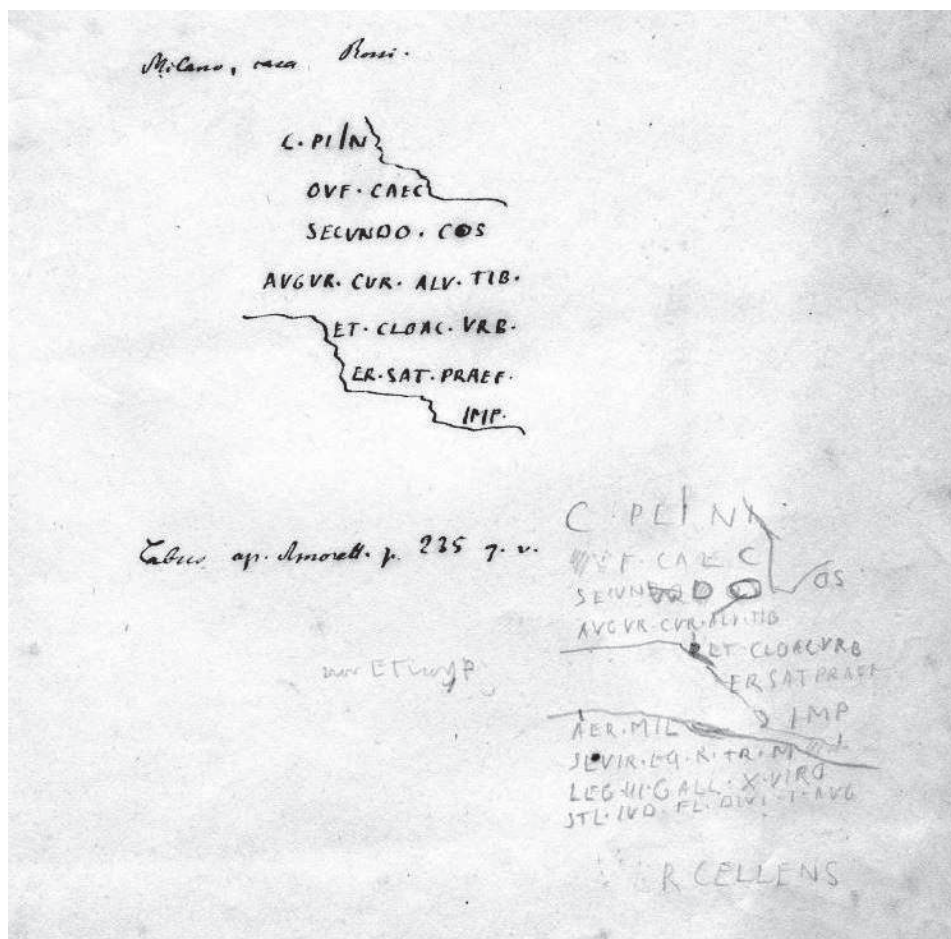 Milano, casa Rossi.
C. PLIN
OVF. CAEC
SECUNDO. COS
AVGVR. CVR. ALV. TIB.
ET. CLOAC. VRB.
ER. SAT. PRAEF.
IMP.
Labus ap. Amorett. p. 235 q. v.
C PLINI
CAEC
SECUNDO OS
AVGVR. CVR. ALV. TIB
ET CLOAC VRB
ER SAT PRAEF
IMP
AER. MIL
SEVIR. EQ. R. TR. M
LEG. III. GALL. X. VIRO
STL. IVD. FL. DIVI. T. AVG
R CELLENS